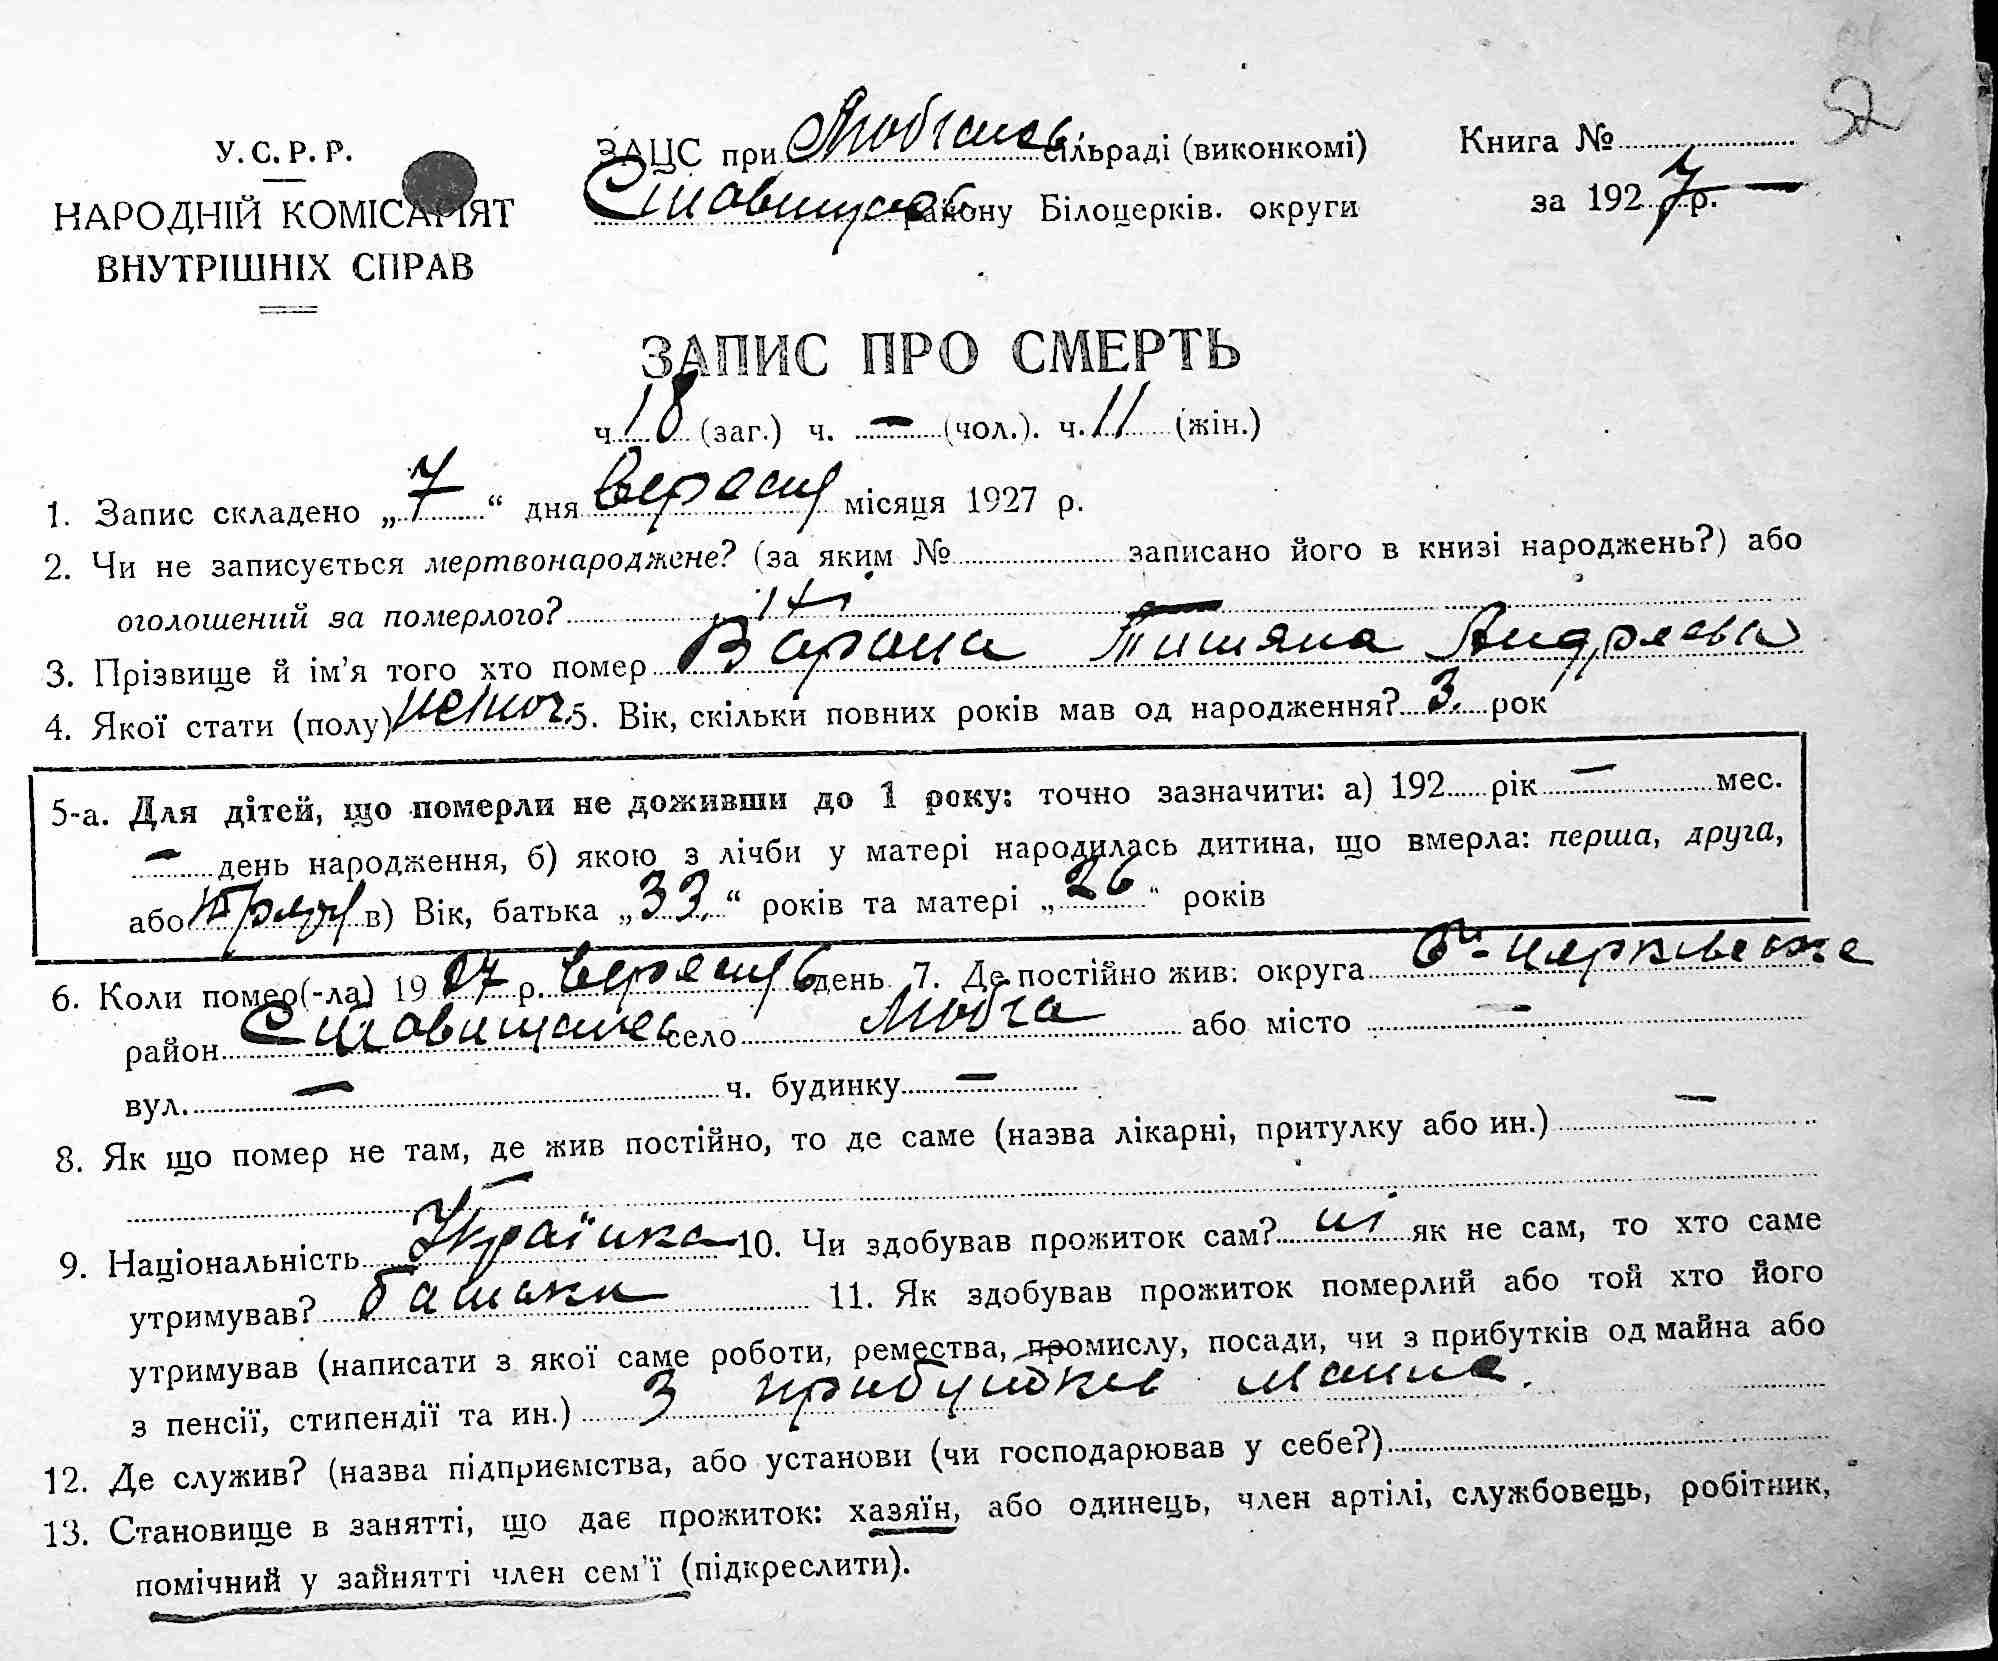 52
У. С. Р. Р.
НАРОДНІЙ КОМІСАРІЯТ
ВНУТРІШНІХ СПРАВ
ЗАЦС при Любчансь сільраді (виконкомі)
Ставищсь району Білоцерків. округи
Книга №
за 1927 р.
ЗАПИС ПРО СМЕРТЬ
ч 18 (заг.) ч. — (чол.). ч. 11 (жін.)
1. Запис складено „ 7 “ дня вересня місяця 1927 р.
2. Чи не записується мертвонароджене? (за яким № записано його в книзі народжень?) або
оголошений за померлого? ні —
3. Прізвище й ім’я того хто помер Варона Титяна Андреева
4. Якої стати (полу) женоч 5. Вік, скільки повних років мав од народження? 3. рок
5-а. Для дітей, що померли не доживши до 1 року: точно зазначити: а) 192 рік — мес.
— день народження, б) якою з лічби у матері народилась дитина, що вмерла: перша, друга,
або третя в) Вік, батька „ 33. “ років та матері „ 26 “ років
6. Коли помер(-ла) 1927 р. вересня 6 день 7. Де постійно жив: округа Б-церківське
район Ставищансь село Любча або місто —
вул. — ч. будинку —
8. Як що помер не там, де жив постійно, то де саме (назва лікарні, притулку або ин.) —
—
9. Національність Українка 10. Чи здобував прожиток сам? ні як не сам, то хто саме
утримував? батьки 11. Як здобував прожиток померлий або той хто його
утримував (написати з якої саме роботи, ремества, промислу, посади, чи з прибутків од майна або
з пенсії, стипендії та ин.) З прибутків майна.
12. Де служив? (назва підприємства, або установи (чи господарював у себе?)
13. Становище в занятті, що дає прожиток: хазяїн, або одинець, член артілі, службовець, робітник,
помічний у зайнятті член сем’ї (підкреслити).